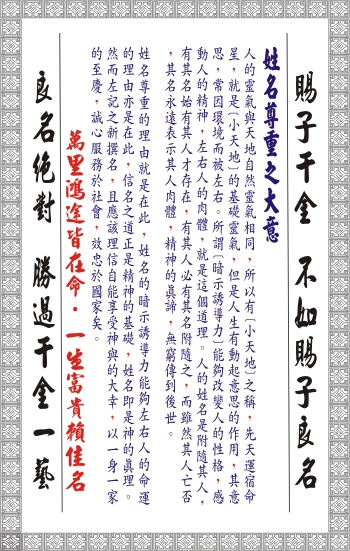 賜子千金　不如賜子良名
姓名尊重之大意
人的靈氣與天地自然靈氣相同，所以有〔小天地〕之稱，先天運宿命
星，就是〔小天地〕的基礎靈氣，但是人生有動起意思的作用，其意
思，常因環境而被左右。所謂〔暗示誘導力〕能夠改變人的性格，感
動人的精神，左右人的肉體，就是這個道理。人的姓名是附隨其人，
有其名始有其人才存在，有其人必有其名附隨之，而雖然其人亡否
，其名永遠表示其人肉體，精神的真諦，無窮傳到後世。
姓名尊重的理由就是在此，姓名的暗示誘導力能夠左右人的命運
的理由亦是在此，信名之道正是精神的基礎，姓名即是神的真理。
然而左記之新撰名，且應該理信自能享受神與的大幸，以一身一家
的至慶，誠心服務於社會，效忠於國家矣。
萬里鴻途皆在命．一生富貴賴佳名
良名絕對　勝過千金一藝